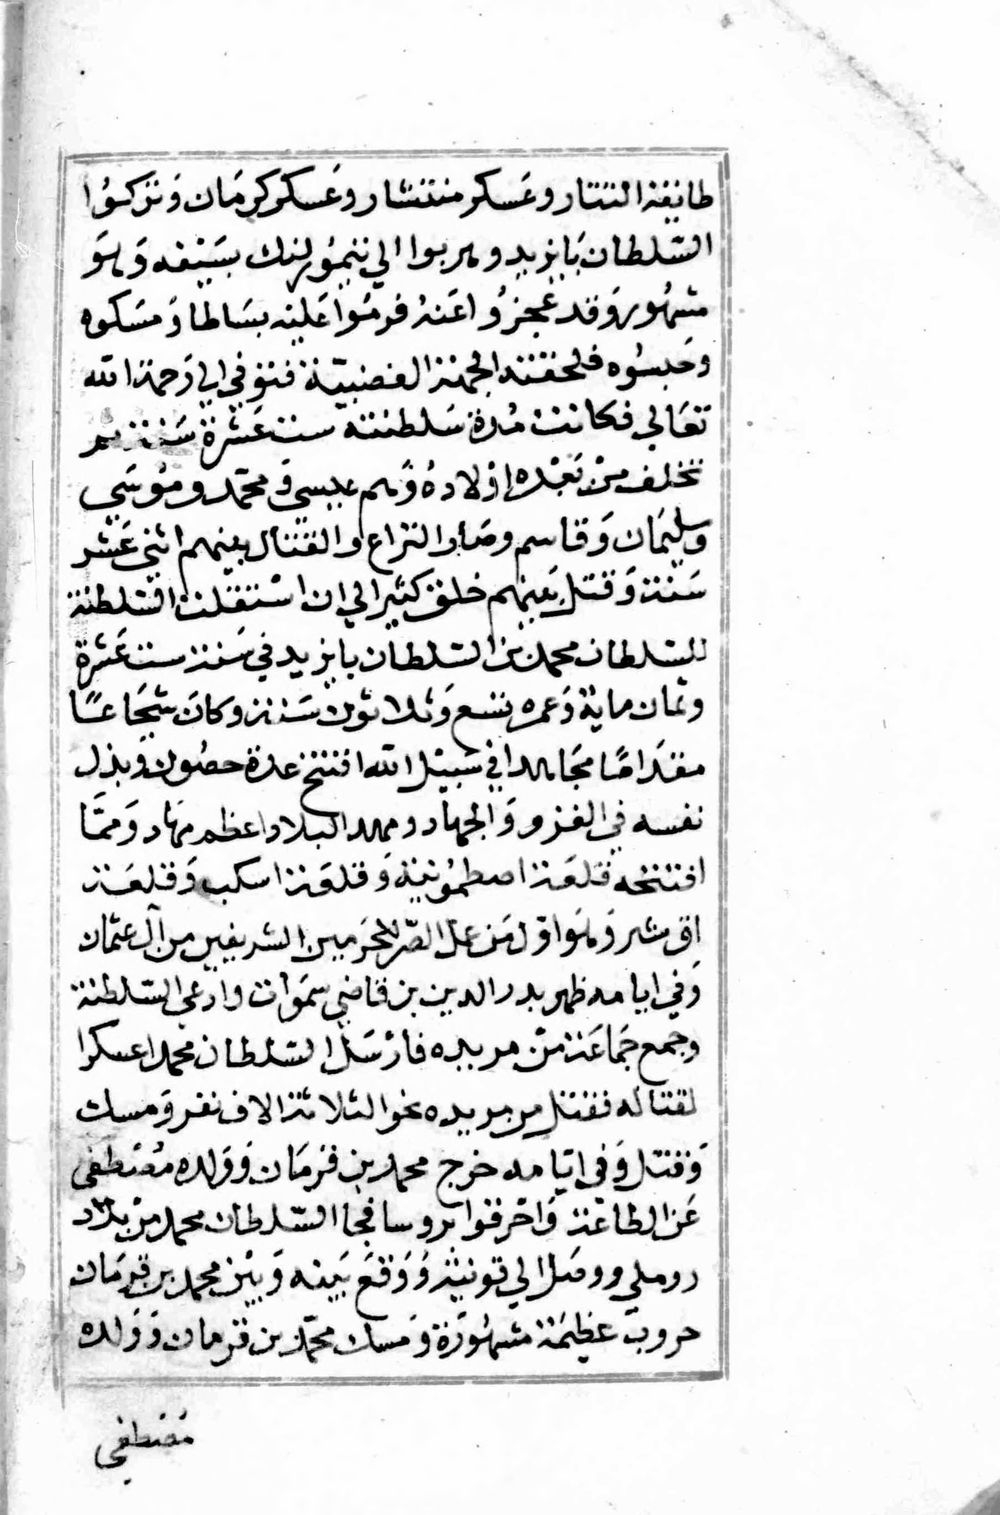 طايفة التتار وعَسكر منتشار وعَسكر كرمَان وَتركوُا
السّلطان بَايزيد وهربوا الي تيموُرلنك بسَيفه وَهوَ
مشهُور وَقد عجزوُا عَنهُ فرمُوا عَليْه بسَاطا وَمسَكوه
وحَبسُوه فلحقته الحمّة الغضبيّة فتوفي الي رَحمة الله
تعَالي فكانت مُدة سَلطنته ست عَشرة سَنة ثم
تخلف منْ بَعْده اوْلادهُ وَهم عيسي وَ محمّد وموُسَي
وسليمَان وَقاسم وصَار النزاع والقتال بينهم اثني عَشر
سَنة وَقتل بَينهم خلق كثير الي ان اسْتقلت السّلطنة
للسّلطان محمد بن السّلطان بايزيد في سَنة ست عَشرة
وثمان ماية وَعمره تسع وَثلاثون سَنة وكانَ شجَاعًا
مقدَامًا مجَاهدا في سَبيْل الله افتتح عدة حصُون وبذل
نفسه في الغزو وَالجهاد ومهد البلاد اعظم مهَاد وَممّا
افتتحه قلعَة اصطمُونية وَقلعَة اسكب وَقلعَة
اق شهر وَهوَ اوّل مَن عمل الصّر للحرَمين الشريفين من آل عثمان
وَفي ايامه ظهر بدر الدين بن قاضي سمَوات وادعي السّلطنة
وجمع جَمَاعَة منْ مريده فارْسَل السّلطان محمدا عسكرا
لقتاله فقتل من مريده نحو الثلاثة الاف نفر وَمسك
وَقتل وَفي ايّامه خرج محمد بن قرمَان وَوَلده مصْطفي
عَن الطاعَة وَاحْرقوا بروسا فجا السّلطان محمد منْ بلاد
روملي ووصَل الي قونية وَوَقعَ بَينه وَبيْن محمد بن قرمَان
حروب عَظيمَة مشهُورَة وَمسك محمّد بن قرمان وَوَلده
مُصْطفي